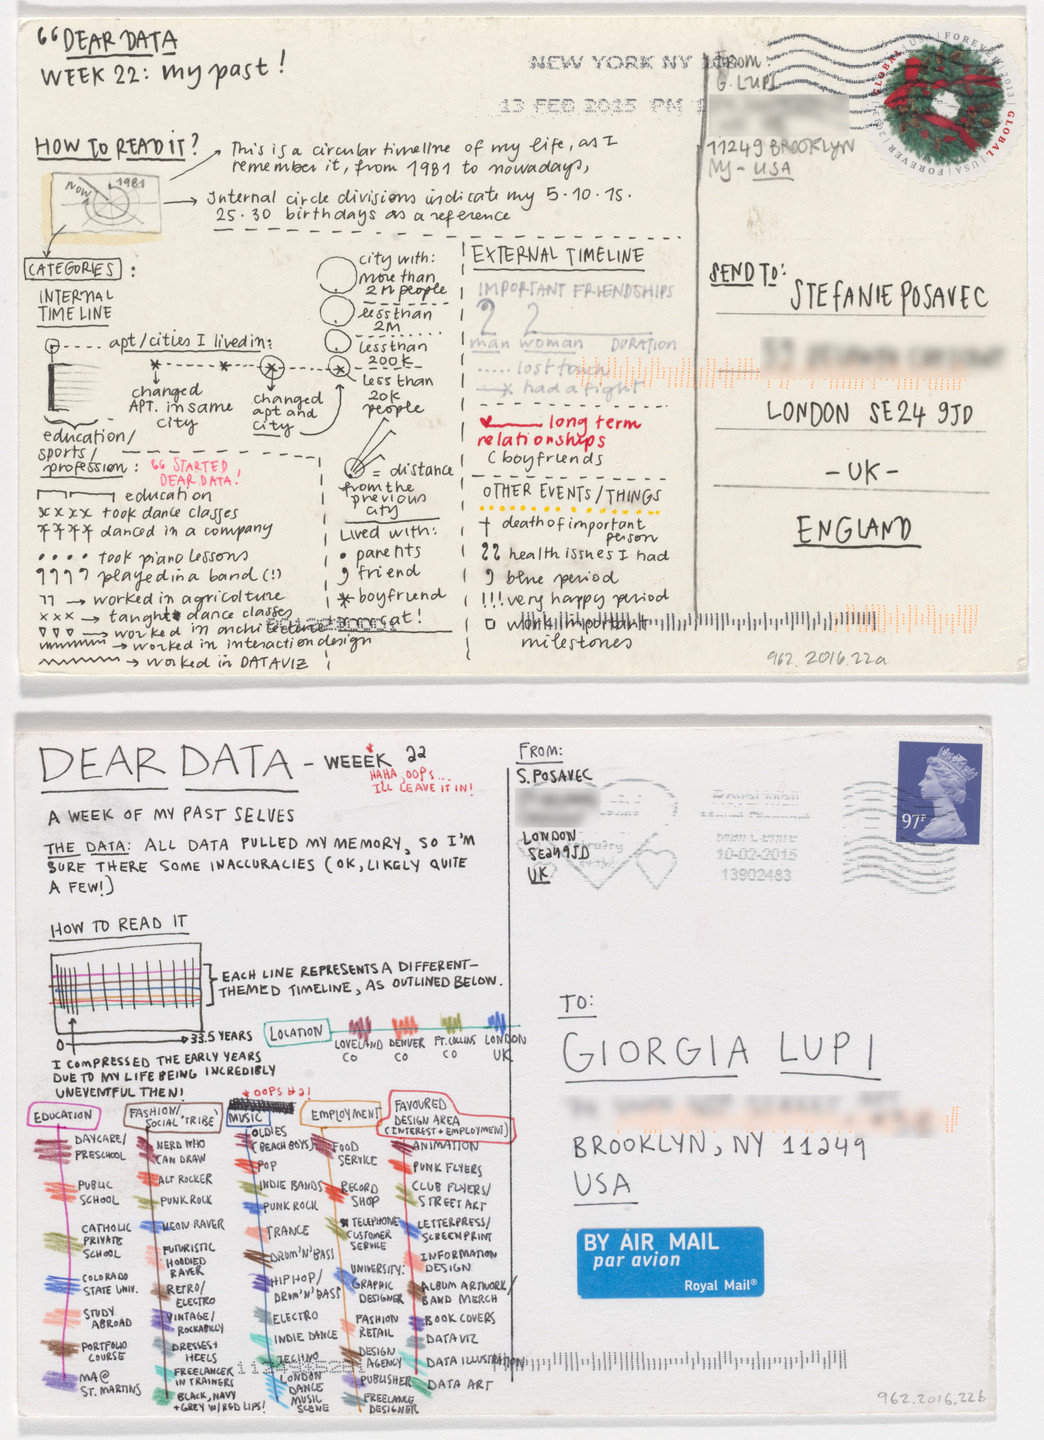 “DEAR DATA
WEEK 22: my past!
HOW TO READ IT?
This is a circular timeline of my life, as I
remember it, from 1981 to nowadays,
NOW
1981
Internal circle divisions indicate my 5·10·15·
25·30 birthdays as a reference
CATEGORIES:
INTERNAL
TIMELINE
apt/cities I lived in:
changed
APT. in same
city
changed
apt and
city
city with:
more than
2M people
less than
2M
less than
200K
less than
20K
people
= distance
from the
previous
city
Lived with:
parents
friend
boyfriend
cat!
education/
sports/
profession:
“STARTED
DEAR DATA!
education
xxxx took dance classes
danced in a company
took piano lessons
played in a band (!)
worked in agriculture
xxx → taught dance classes
worked in architecture
worked in interaction design
worked in DATAVIZ
EXTERNAL TIMELINE
IMPORTANT FRIENDSHIPS
man woman DURATION
lost touch
had a fight
long term
relationships
(boyfriends
OTHER EVENTS/THINGS
† death of important
person
health issues I had
blue period
!!! very happy period
work important
milestones
NEW YORK NY
13 FEB 2015 PM
From:
G. LUPI
11249 BROOKLYN
NY - USA
GLOBAL | USA | FOREVER | 2013 | GLOBAL | USA | FOREVER | 2013
SEND TO:
STEFANIE POSAVEC
LONDON SE24 9JD
- UK -
ENGLAND
962.2016.22a
DEAR DATA - WEEEK 22
HAHA, OOPS...
I'LL LEAVE IT IN!
A WEEK OF MY PAST SELVES
THE DATA: ALL DATA PULLED MY MEMORY, SO I'M
SURE THERE SOME INACCURACIES (OK, LIKELY QUITE
A FEW!)
HOW TO READ IT
EACH LINE REPRESENTS A DIFFERENT-
THEMED TIMELINE, AS OUTLINED BELOW.
0 33.5 YEARS
I COMPRESSED THE EARLY YEARS
DUE TO MY LIFE BEING INCREDIBLY
UNEVENTFUL THEN!
LOCATION
LOVELAND
CO
DENVER
CO
FT. COLLINS
CO
LONDON
UK
* OOPS #2!
EDUCATION
DAYCARE/
PRESCHOOL
PUBLIC
SCHOOL
CATHOLIC
PRIVATE
SCHOOL
COLORADO
STATE UNIV.
STUDY
ABROAD
PORTFOLIO
COURSE
MA@
ST. MARTINS
FASHION/
SOCIAL 'TRIBE'
NERD WHO
CAN DRAW
ALT ROCKER
PUNK ROCK
NEON RAVER
FUTURISTIC
HOODIED
RAVER
RETRO/
ELECTRO
VINTAGE/
ROCKABILLY
DRESSES +
HEELS
FREELANCER
IN TRAINERS
BLACK, NAVY
+ GREY W/ RED LIPS!
MUSIC
OLDIES
(BEACH BOYS)
POP
INDIE BANDS
PUNK ROCK
TRANCE
DRUM'N'BASS
HIP HOP/
DRUM'N'BASS
ELECTRO
INDIE DANCE
TECHNO
LONDON
DANCE
MUSIC
SCENE
EMPLOYMENT
FOOD
SERVICE
RECORD
SHOP
TELEPHONE
CUSTOMER
SERVICE
UNIVERSITY:
GRAPHIC
DESIGNER
FASHION
RETAIL
DESIGN
AGENCY
PUBLISHER
FREELANCE
DESIGNER
FAVOURED
DESIGN AREA
(INTEREST + EMPLOYMENT)
ANIMATION
PUNK FLYERS
CLUB FLYERS/
STREET ART
LETTERPRESS/
SCREENPRINT
INFORMATION
DESIGN
ALBUM ARTWORK/
BAND MERCH
BOOK COVERS
DATAVIZ
DATA ILLUSTRATION
DATA ART
FROM:
S. POSAVEC
LONDON
SE24 9JD
UK
Royal Mail
10-02-2015
13902483
97P
TO:
GIORGIA LUPI
BROOKLYN, NY 11249
USA
BY AIR MAIL
par avion
Royal Mail®
962.2016.22b